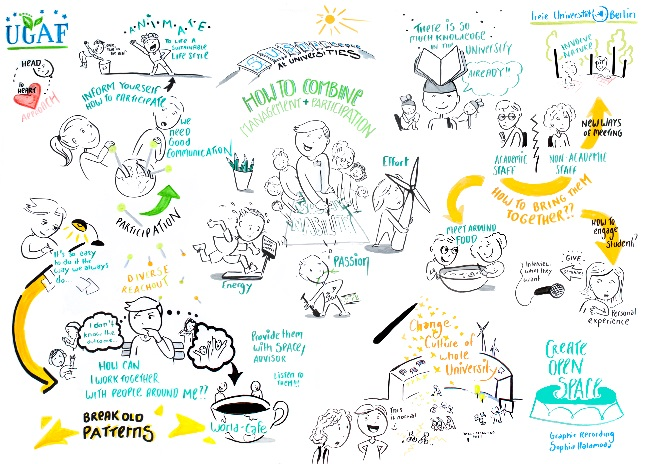 UGAF
HEAD
to
HEART
ANIMATE
TO LIFE A
SUSTAINABLE
LIFE STYLE
AT UNIVERSITIES
HOW TO COMBINE
MANAGEMENT + PARTICIPATION
THERE IS SO
MUCH KNOWLEDGE
IN THE
UNIVERSITY
ALREADY!!
Freie Universität Berlin
INVOLVE
NATURE
INFORM YOURSELF
HOW TO PARTICIPATE
WE
NEED
GOOD
COMMUNICATION
PARTICIPATION
ACADEMIC
STAFF
NON-ACADEMIC
STAFF
NEW WAYS
OF MEETING
HOW TO BRING THEM
TOGETHER??
HOW TO
engage
Students?
Effort
MEET AROUND
FOOD
GIVE
INTERVIEW
what they
want
Personal
experience
It's so easy
to do it the
way we always
do...
DIVERSE
REACHOUT
Energy
PASSION
I don't
know the
outcome..
HOW CAN
I WORK TOGETHER
WITH PEOPLE AROUND ME??
BREAK OLD
PATTERNS
Provide them
with SPACE/
ADVISOR
LISTEN TO
THEM!!
World-Cafe
Change
Culture of
whole
University
This is
normal
CREATE
OPEN
SPACE
Graphic Recording